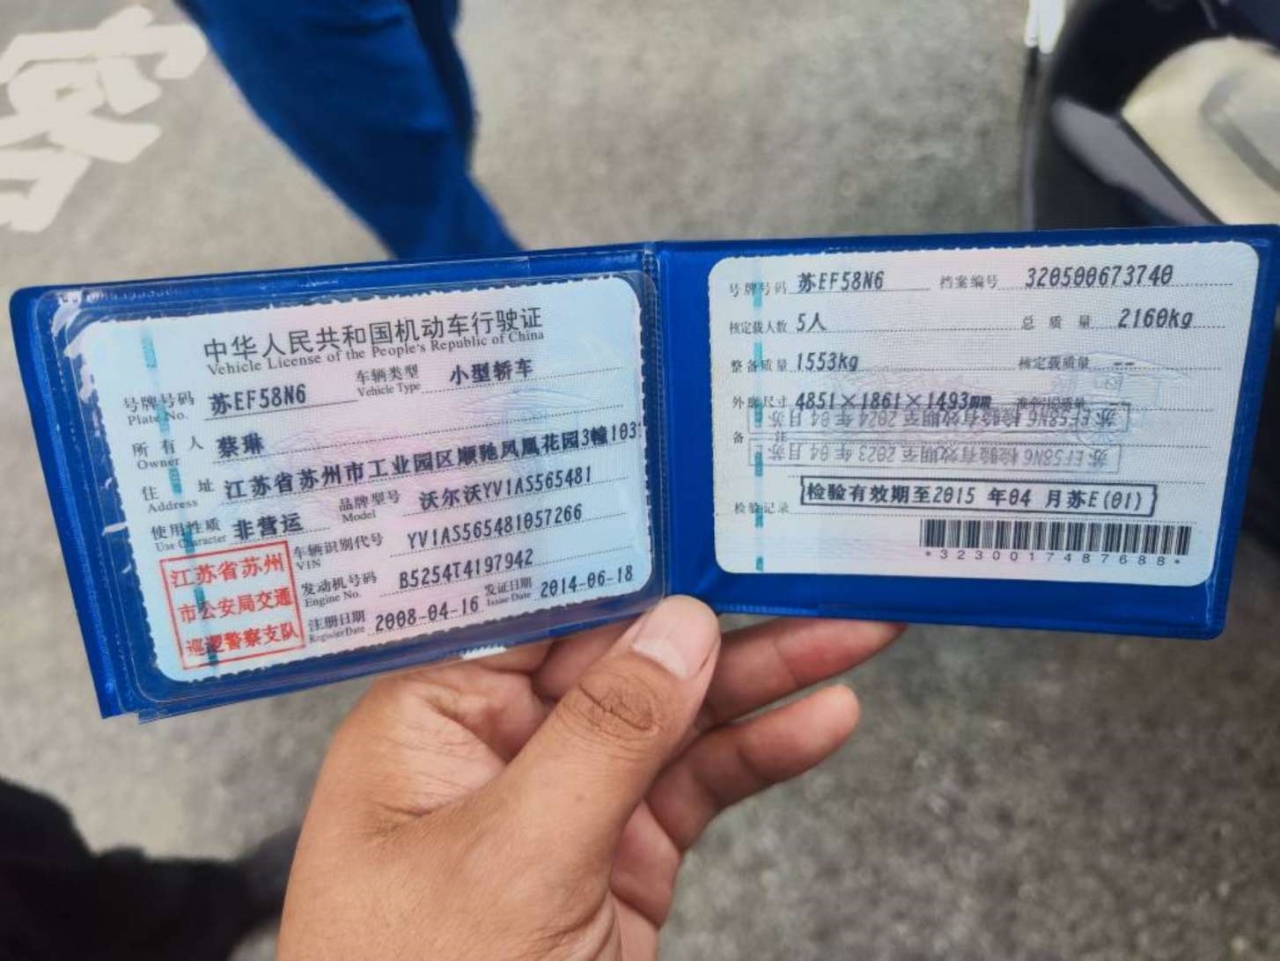 中华人民共和国机动车行驶证
Vehicle License of the People's Republic of China
号牌号码 苏EF58N6 车辆类型 小型轿车
Plate No. Vehicle Type
所有人 蔡琳
Owner
住址 江苏省苏州市工业园区顺驰凤凰花园3幢103
Address
使用性质 非营运 品牌型号 沃尔沃YV1AS565481
Use Character Model
车辆识别代号 YV1AS565481057266
VIN
发动机号码 B5254T4197942
Engine No.
注册日期 2008-04-16 发证日期 2014-06-18
Register Date Issue Date
江苏省苏州
市公安局交通
巡逻警察支队
号牌号码 苏EF58N6 档案编号 320500673740
核定载人数 5人 总质量 2160kg
整备质量 1553kg 核定载质量 --
外廓尺寸 4851×1861×1493mm 准牵引总质量 --
备注
苏EF58N6 检验有效期至 2024 年 04 月
苏EF58N6 检验有效期至 2023 年 04 月
检验记录 检验有效期至2015 年04 月苏E(01)
*3230017487688*